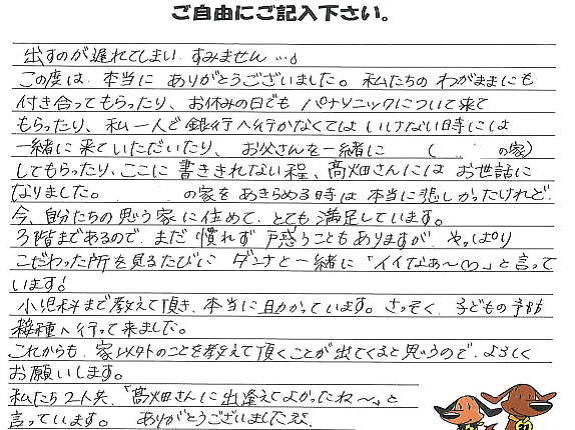 ご自由にご記入下さい。
出すのが遅れてしまい すみません…。
この度は 本当に ありがとうございました。私たちの わがままにも
付き合ってもらったり、お休みの日でも パナソニックについて来て
もらったり、私一人で銀行へ行かなくては いけない時には
一緒に来ていただいたり、お父さんを一緒に ( の家)
してもらったり、ここに 書ききれない程、髙畑さんには お世話に
なりました。 の家をあきらめる時は 本当に悲しかったけれど、
今、自分たちの思う家に住めて、とても 満足しています。
3階まであるので、まだ 慣れず 戸惑うこともありますが、やっぱり
こだわった所を見るたびに ダンナと一緒に「イイなぁ〜」と言って
います!
小児科まで教えて頂き、本当に助かっています。さっそく、子どもの予防
接種へ行って来ました。
これからも、家以外のことを教えて頂くことが出てくると思うので、よろしく
お願いします。
私たち2人共、「髙畑さんに出逢えてよかったね〜」と
言っています。 ありがとうございました。